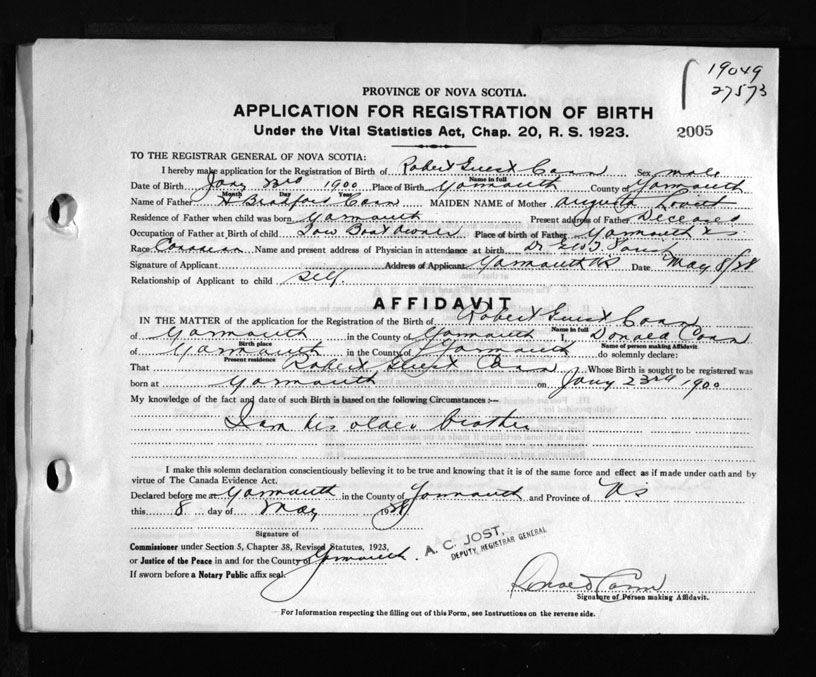 19049
27573
PROVINCE OF NOVA SCOTIA.
APPLICATION FOR REGISTRATION OF BIRTH
Under the Vital Statistics Act, Chap. 20, R. S. 1923.
2005
TO THE REGISTRAR GENERAL OF NOVA SCOTIA:
I hereby make application for the Registration of Birth of Robert Guest Cann Sex male
Name in full
Date of Birth Jany 23rd 1900 Place of Birth Yarmouth County of Yarmouth
Month Day Year
Name of Father H Bradford Cann MAIDEN NAME of Mother Augusta Lovitt
Residence of Father when child was born Yarmouth Present address of Father Deceased
Occupation of Father at Birth of Child Tow Boat Owner Place of birth of Father Yarmouth NS
Race Canadian Name and present address of Physician in attendance at birth Dr Geo
Signature of Applicant Address of Applicant Yarmouth NS Date May 8/28
Relationship of Applicant to child self.
AFFIDAVIT
IN THE MATTER of the application for the Registration of the Birth of Robert Guest Cann
Name in full
of Yarmouth in the County of Yarmouth I, Donald Cann
Birth place Name of person making Affidavit
of Yarmouth in the County of Yarmouth do solemnly declare:
Present residence
That Robert Guest Cann Whose Birth is sought to be registered was
born at Yarmouth on Jany 23rd 1900
My knowledge of the fact and date of such Birth is based on the following Circumstances :—
I am his older brother
I make this solemn declaration conscientiously believing it to be true and knowing that it is of the same force and effect as if made under oath and by
virtue of The Canada Evidence Act.
Declared before me at Yarmouth in the County of Yarmouth and Province of NS
this 8 day of May 1928
Signature of
Commissioner under Section 5, Chapter 38, Revised Statutes, 1923,
or Justice of the Peace in and for the County of Yarmouth.
A. C. JOST,
DEPUTY REGISTRAR GENERAL
If sworn before a Notary Public affix seal.
Donald Cann
Signature of Person making Affidavit.
For Information respecting the filling out of this Form, see Instructions on the reverse side.